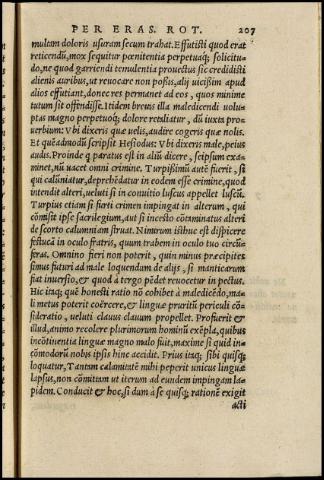 PER ERAS. ROT. 207
mulam doloris usuram secum trahat. Effutisti quod erat
reticendũ, mox sequitur pœnitentia perpetuaq;́ solicitu-
do, ne quod garriendi temulentia prouectus sic credidisti
alienis auribus, ut reuocare non possis, alij uicißim apud
alios effutiant, donec res permanet ad eos, quos minime
tutum sit offendisse. Itidem breuis illa maledicendi uolu-
ptas magno perpetuoq;́ dolore retaliatur, dũ iuxta pro-
uerbium: Vbi dixeris quæ uelis, audire cogeris quæ nolis.
Et quẽadmodũ scripsit Hesiodus: Vbi dixeris male, peius
audis. Proinde q paratus est in aliũ dicere, seipsum exa-
minet, nũ uacet omni crimine. Turpißimũ autẽ fuerit, si
qui calũniatur, deprehẽdatur in eodem esse crimine, quod
intendit alteri, ueluti si in conuitio luscus appellet luscũ.
Turpius etiam si furti crimen impingat in alterum, qui
cõmisit ipse sacrilegium, aut si incesto cõtaminatus alteri
de scorto calumniam struat. Nimirum isthuc est dispicere
festucã in oculo fratris, quum trabem in oculo tuo circũ-
feras. Omnino fieri non poterit, quin minus præcipites
simus futuri ad male loquendum de alijs, si manticarum
fiat inuersio, & quod à tergo pẽdet reuocetur in pectus.
Hic itaq;́ quẽ honesti ratio nõ cohibet à maledicẽdo, ma-
li metus poterit coërcere, & linguæ pruritũ periculi cõ-
sideratio, ueluti clauus clauum propellet. Profuerit &
illud, animo recolere plurimorum hominũ exẽpla, quibus
incõtinentia linguæ magno malo fuit, maxime si quid in-
cõmodorũ nobis ipsis hinc accidit. Prius itaq;́ sibi quisq;́
loquatur, Tantam calamitatẽ mihi peperit unicus linguæ
lapsus, non cõmitam ut iterum ad eundem impingam la-
pidem. Conducit & hoc, si dum à se quisq;́ rationẽ exigit
acti